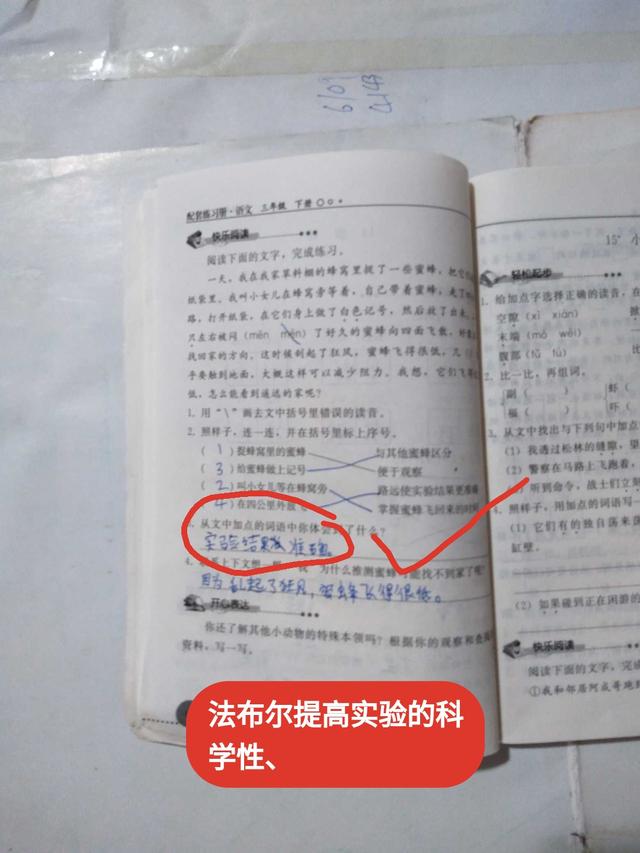 6/09
配套练习册·语文 三年级 下册
快乐阅读
阅读下面的文字,完成练习。
一天,我在我家草料棚的蜂窝里捉了一些蜜蜂,把它们
纸袋里。我叫小女儿在蜂窝旁等着,自己带着蜜蜂,走了
路,打开纸袋,在它们身上做了白色记号,然后放了出来。
只左右被闷(mēn mèn)了好久的蜜蜂向四面飞散,好像
找回家的方向。这时候刮起了狂风,蜜蜂飞得很低,几
乎要触到地面,大概这样可以减少阻力。我想,它们飞得
低,怎么能看到遥远的家呢?
1. 用“\”画去文中括号里错误的读音。
2. 照样子,连一连,并在括号里标上序号。
( 1 )捉蜂窝里的蜜蜂 与其他蜜蜂区分
( 3 )给蜜蜂做上记号 便于观察
( 2 )叫小女儿等在蜂窝旁 路远使实验结果更准确
( 4 )在四公里外放飞 掌握蜜蜂飞回来的时间
从文中加点的词语中你体会到了什么?
实验结果 准确。
4. 上下文想一 说 为什么推测蜜蜂可能找不到家了呢?
因为刮起了狂风,蜜蜂飞得很低。
开心表达
你还了解其他小动物的特殊本领吗?根据你的观察和查阅
资料,写一写。
15* 小
轻松起步
1. 给加点字选择正确的读音,在
空隙(xì xiàn)
末端(mò wèi)
腹部(fǔ fù)
2. 比一比,再组词。
副( ) 虾(
福( ) 吓(
3. 从文中找出与下列句中加点
(1)我透过松林的缝隙,望
(2)警察在马路上飞跑着,
(3)听到命令,战士们立刻
4. 照样子,用加点的词语写一
(1)它们有的独自荡来荡
缸壁。
(2)如果碰到正在闲游的
快乐阅读
阅读下面的文字,完成
①我和邻居阿成哥地
法布尔提高实验的科
学性、